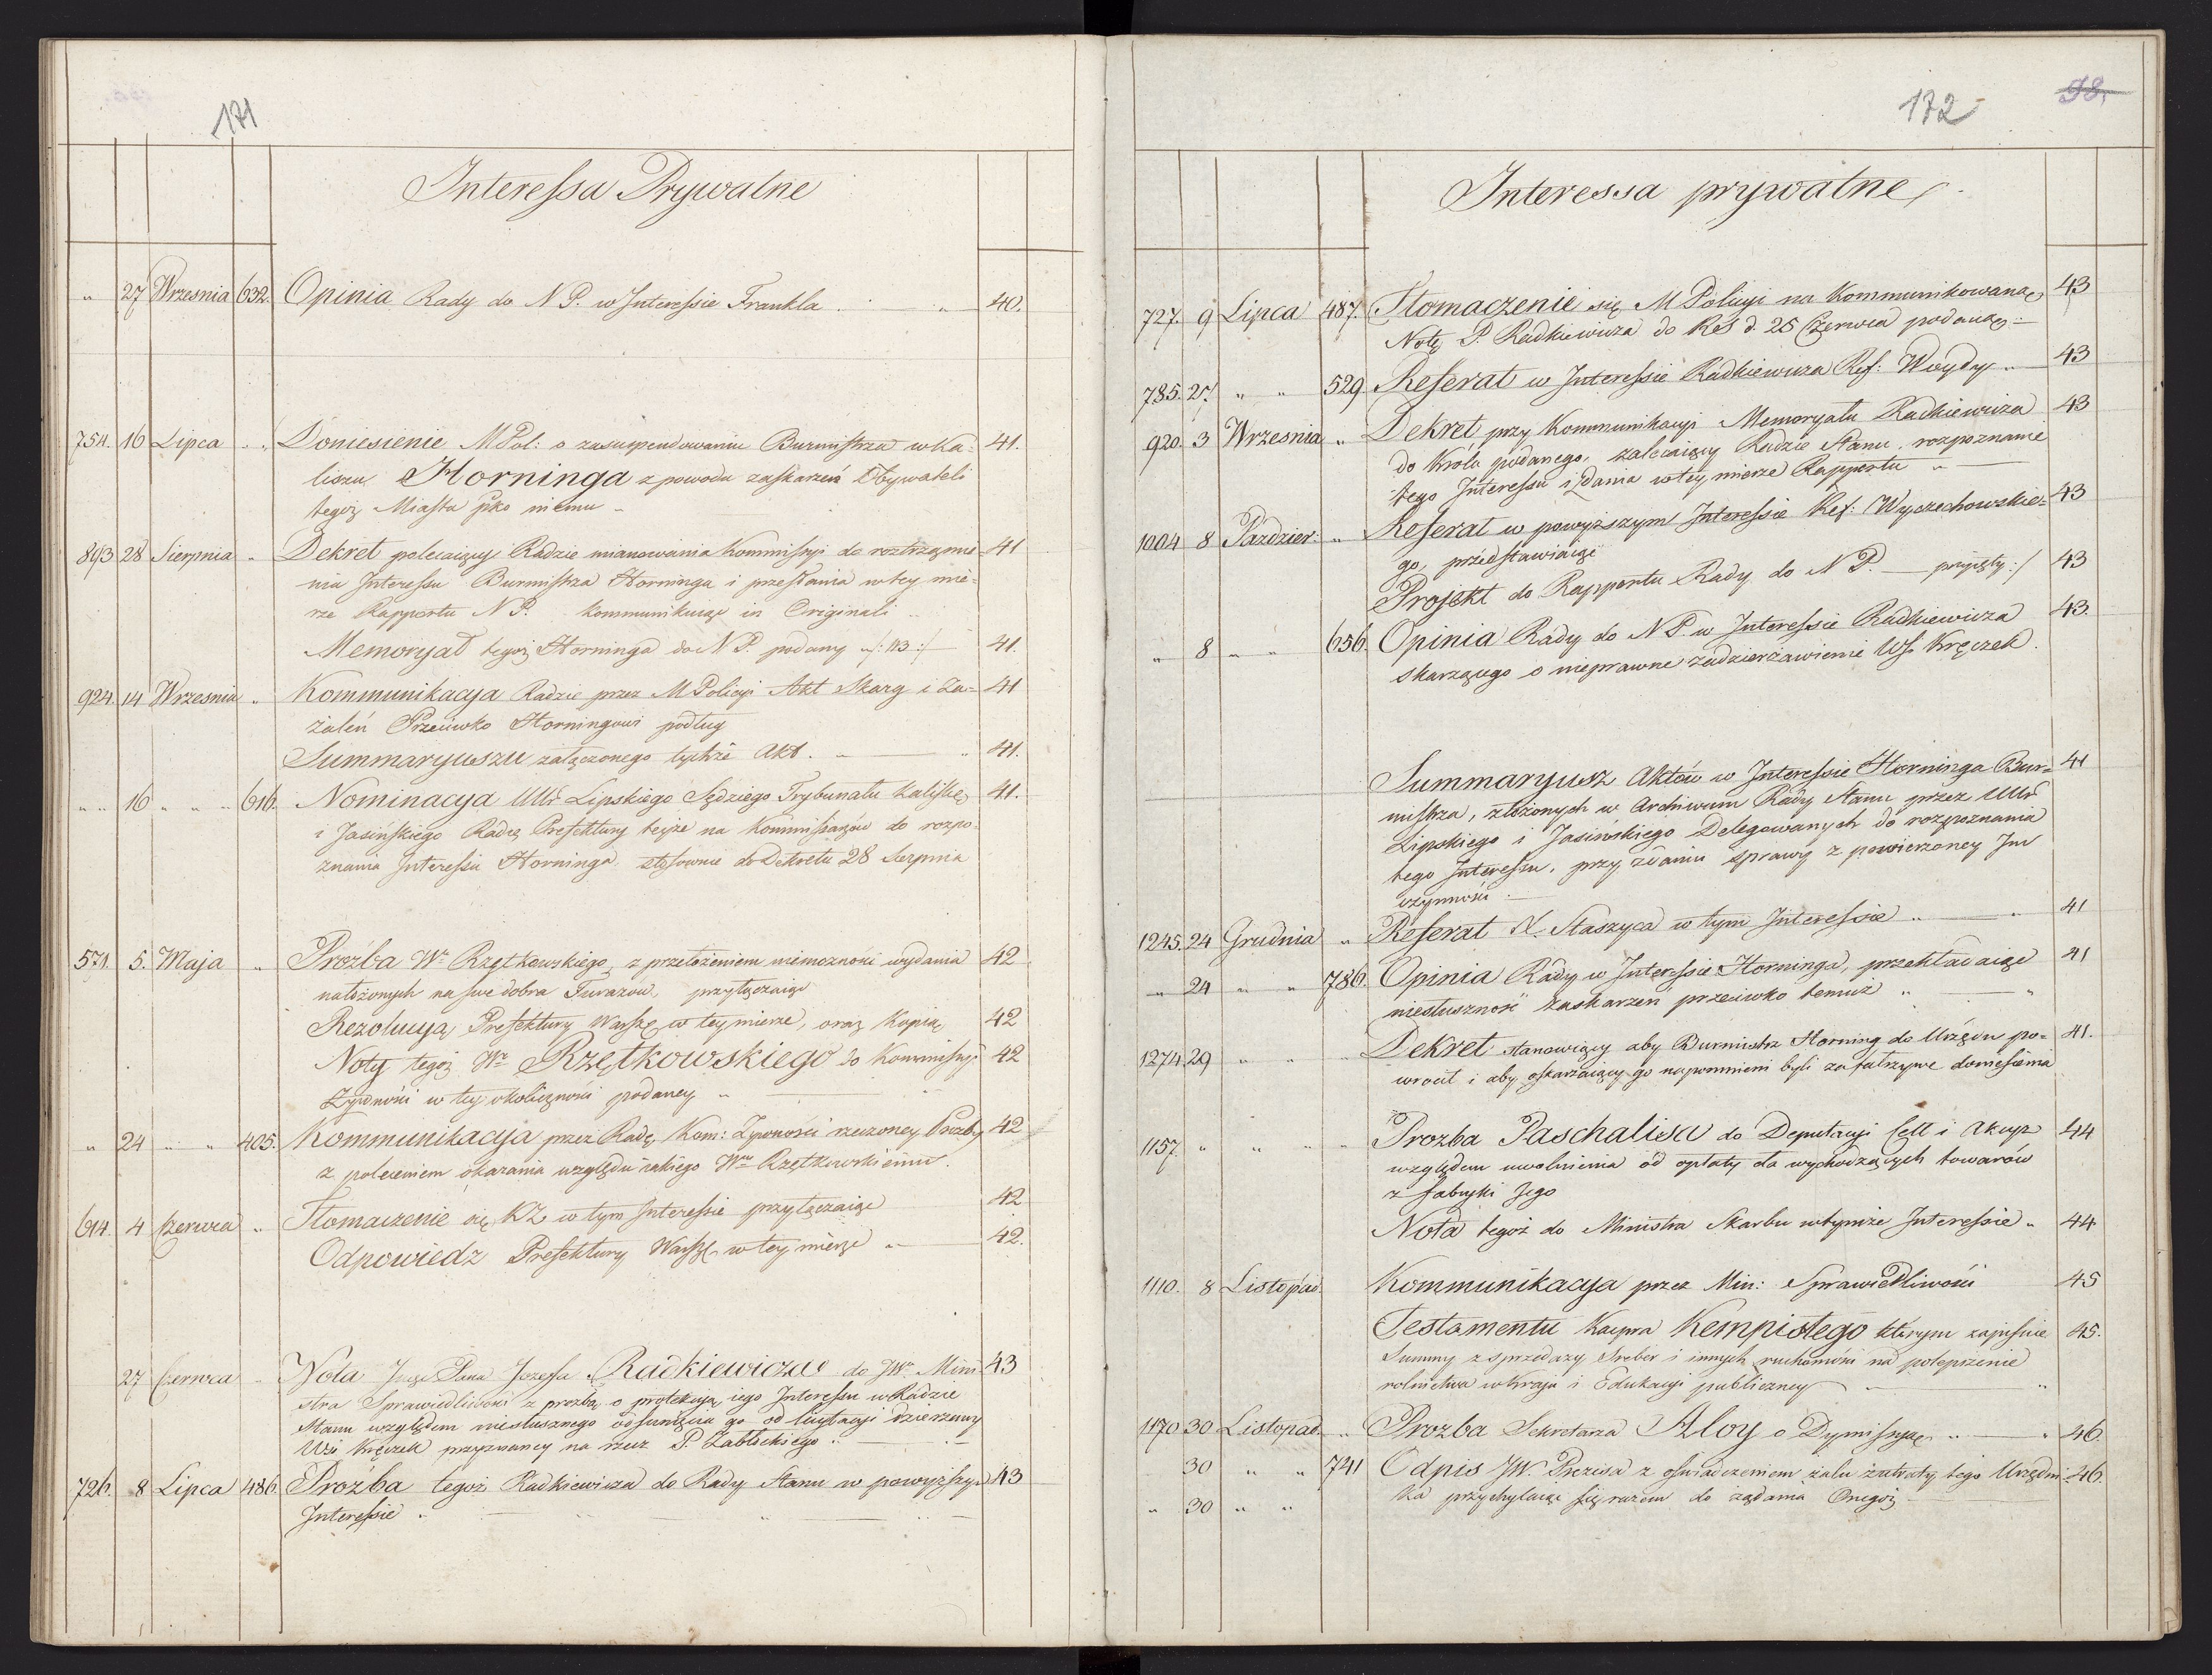 171
Interessa Prywatne
" 27 Wrzesnia 632. Opinia Rady do N P. w Interessie Frankla . " — 40.
754. 16 Lipca " " Doniesienie M Pol: o zasuspendowaniu Burmistrza w Ka- 41.
liszu Horninga z powodu zaskarzeń Obywateli
tegoż Miasta pko niemu -
893 28 Sierpnia " Dekret polecaiący Radzie mianowania Kommissyi do roztrząśnie- 41
nia Interessu Burmistrza Horninga i przesłania w tey mie-
rze Rapportu N P. kommunikuiąc in Originali "
Memoryał tegoż Horninga do N P. podany " /: 113 :/ — 41.
924. 14 Wrzesnia " Kommunikacya Radzie przez M Policyi Akt Skarg i Za- 41
żaleń Przeciwko Horningowi podług
Summaryuszu załączonego tychże Akt . " — " 41.
" " 16 " " " 616. Nominacya UUr Lipskiego Sędziego Trybunału Kaliskię 41.
i Jasińskiego Radcę Prefektury teyże na Kommissarzów do rozpo-
znania Interessu Horninga stosownie do Dekretu 28 Sierpnia
571. 5. Maja " Prozba Wo Rzętkowskiego, z przełożeniem niemozności wydania 42
nałożonych na swe dobra Furazow, przyłączaiąc
Rezolucyą Prefektury Warszę w tey mierze, oraz Kopią 42
Noty tegoż Wo Rzętkowskiego do Kommissyi 42
Żywności w tey okoliczności podaney " —
" 24 " " 405. Kommunikacya przez Radę, Kom: Żywności rzeczoney Prozby 42
z poleceniem okazania względu iakiego Wmu Rzętkowskiemu.
614 4 Czerwca " Tłomaczenie się KŻ w tym Interessie przyłączaiąc 42
Odpowiedz Prefektury Warszę w tey mierze " — 42.
27 Czerwca " Nota Pana Jozefa Radkiewicza do JWo Mini- 43
stra Sprawiedliwości z prozbą o protekcyą iego Interessu w Radzie
Stanu względem niesłusznego odsunięcia go od licytacyi dzierzawy
Wsi Kręczek przyznaney na rzecz P. Zabłockiego " —
726. 8 Lipca 486. Prozba tegoż Radkiewicza do Rady Stanu w powyższym 43
Interessie .
172 98.
Interessa prywatne
727. 9 Lipca 487. Tłomaczenie się M Policyi na Kommunikowaną 43
Notę P. Radkiewicza do Res d. 25 Czerwca podaną —
785. 27 " " 529. Referat w Interessie Radkiewicza Ref: Woydy " — 43
920. 3 Wrzesnia " Dekret przy Kommunikacyi Memoryału Radkiewicza 43
do Króla podanego, zalecaiący Radzie Stanu rozpoznanie
tego Interessu i zdania w tey mierze Rapportu " —
1004 8 Pazdzier: " Referat w powyższym Interessie Ref: Wyczechowskie- 43
go, przedstawiaiąc
Projekt do Rapportu Rady do N P. — przyięty :/ 43
" 8 " " 656. Opinia Rady do N P. w Interessie Radkiewicza 43.
skarzącego o nieprawne zadzierżawienie Wsi Kręczek.
Summaryusz Aktów w Interessie Horninga Bur- 41
mistrza, złożonych w Archiwum Rady Stanu przez UUr
Lipskiego i Jasińskiego Delegowanych do rozpoznania
tego Interessu, przy zdaniu sprawy z powierzoney Im
czynności .
1245. 24 Grudnia " Referat X. Staszyca w tym Interessie " — " 41
" 24 " " 786. Opinia Rady w Interessie Horninga, przekładaiąc 41
niesłuszność zaskarzeń przeciwko temuż " — "
1274 29 " " " Dekret stanowiący aby Burmistrz Horning do Urzędu po- 41.
wrocił i aby oskarżaiący go napomnieni byli za fałszywe doniesienia
1157. " " " " Prozba Paschalisa do Deputacyi Cell i Akcyz 44
względem uwolnienia od opłaty dla wychodzących towarów
z fabryki Jego
Nota tegoż do Ministra Skarbu w tymże Interessie " 44
1110. 8 Listopad. Kommunikacya przez Min: Sprawiedliwości 45
Testamentu Kacpra Kempistego którym zapisuie 45.
Summy z sprzedaży Sreber i innych ruchomości na polepszenie
rolnictwa w kraju i Edukacyi publiczney — "
1170 30 Listopad. " Prozba Sekretarza Aloy o Dymissyą " — " 46.
30 " " 741 Odpis JW. Prezesa z oświadczeniem żalu z utraty tego Urzędni- 46
" 30 " " ka przychylaiąc się razem do żądania Onegoż —